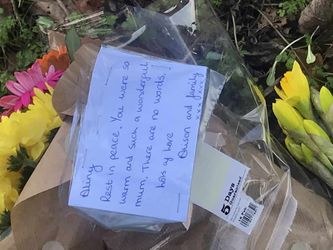 Rest in peace. You were so
warm and such a wonderful
mum. There are no words.
lots of love
and family
xx
5
Days
Guaranteed